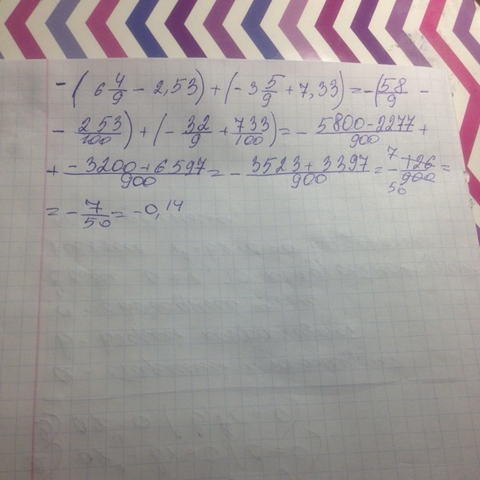 -(6 4/9 - 2,53) + (-3 5/9 + 7,33) = -(58/9 -
- 253/100) + (-32/9 + 733/100) = - 5800-2277/900 +
+ -3200+6597/900 = - 3523+3397/900 = - 7 126/50 900 =
= - 7/50 = -0,14